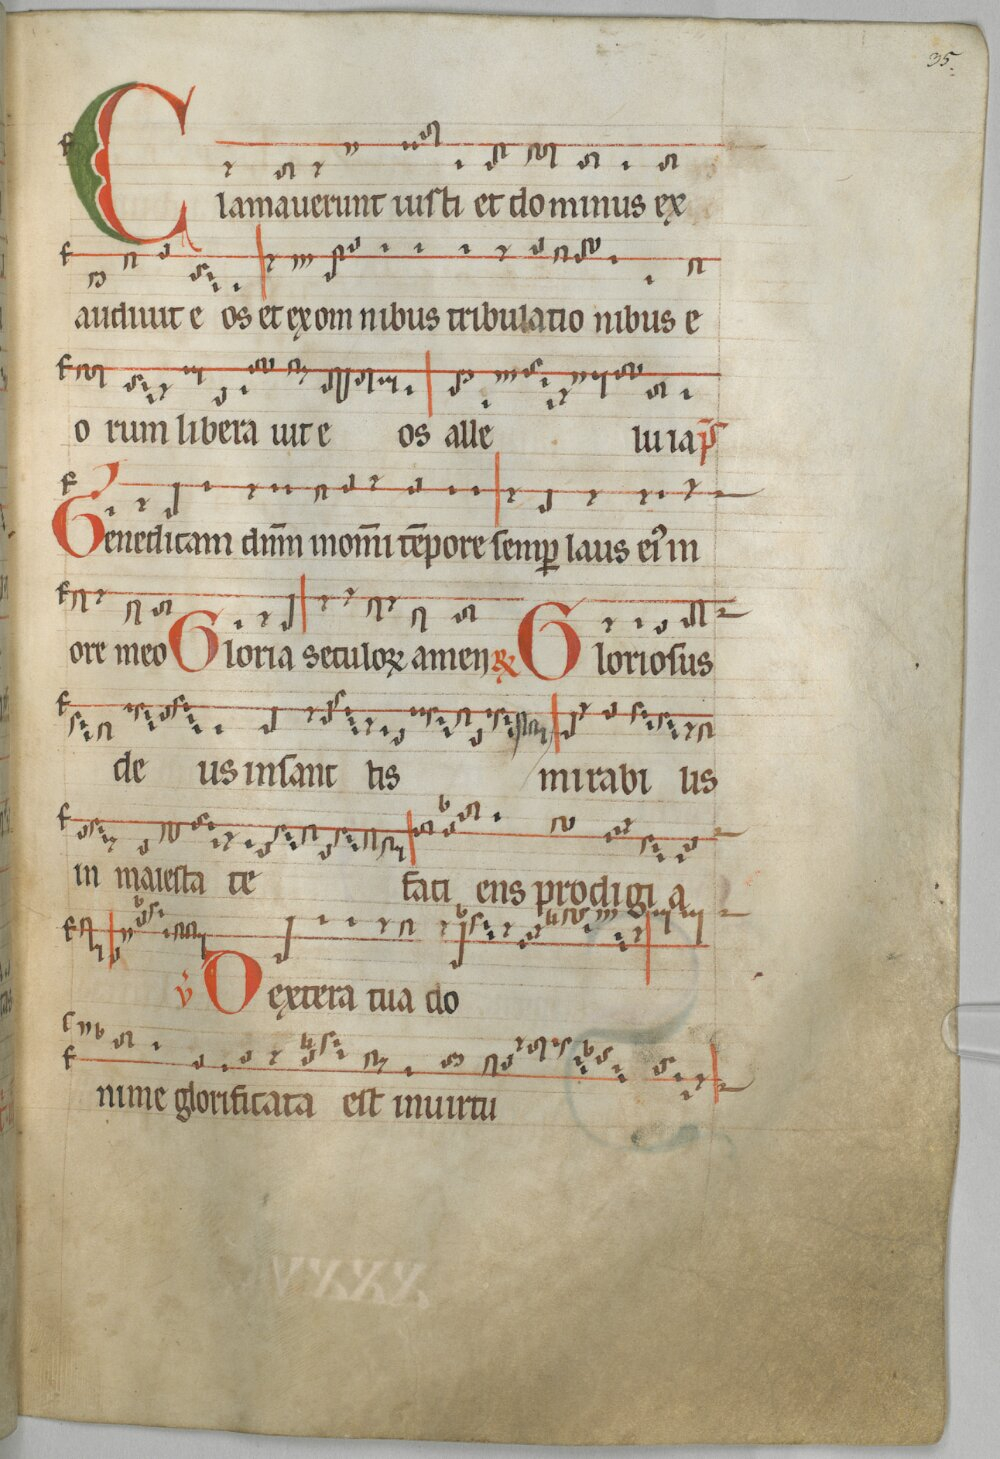 35.
Clamauerunt iusti et dominus ex
audiuit e os et ex om nibus tribulatio nibus e
o rum libera uit e os alle lu ia p̄s
Benedicam dn̄m in om̄i tēpore semꝑ laus ei᾽ in
ore meo Gloria seculoꝝ amen ꝶ Gloriosus
de us in sanc tis mirabi lis
in maiesta te faci ens prodigi a
v̄ Dextera tua do
mine glorificata est in uirtu
XXXV